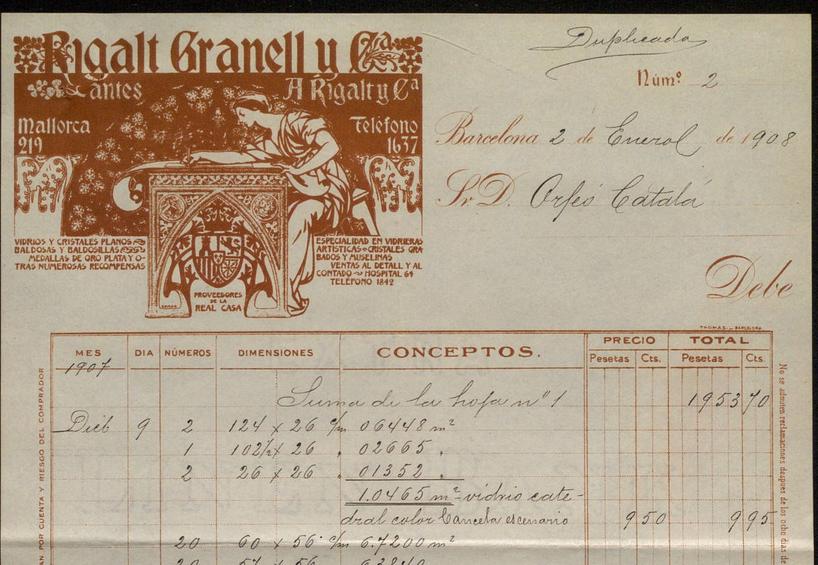 Rigalt Granell y Cª
antes A Rigalt y Cª
Mallorca
219
Teléfono
1637
VIDRIOS Y CRISTALES PLANOS
BALDOSAS Y BALDOSILLAS
MEDALLAS DE ORO PLATA Y O-
TRAS NUMEROSAS RECOMPENSAS
PROVEEDORES
DE LA
REAL CASA
ESPECIALIDAD EN VIDRIERAS
ARTISTICAS CRISTALES GRA-
BADOS Y MUSELINAS
VENTAS AL DETALL Y AL
CONTADO HOSPITAL 64
TELEFONO 1842
Duplicado
Núm.º 2
Barcelona 2 de Enero de 1908
Sr. D. Orfeó Catalá
Debe
THOMAS - BARCELONA
MES DIA NÚMEROS DIMENSIONES CONCEPTOS. PRECIO TOTAL
Pesetas Cts. Pesetas Cts.
1907
Suma de la hoja nº 1 1953 70
Dicb 9 2 124 x 26 c/m 06448 m²
1 102½ x 26 " 02665 "
2 26 x 26 " 01352 "
1.0465 m² vidrio cate-
dral color Cancela escenario 9 50 9 95
20 60 x 56 c/m 6.7200 m²
20 57 x 56
AN POR CUENTA Y RIESGO DEL COMPRADOR
No se admiten reclamaciones despues de los ocho dias de